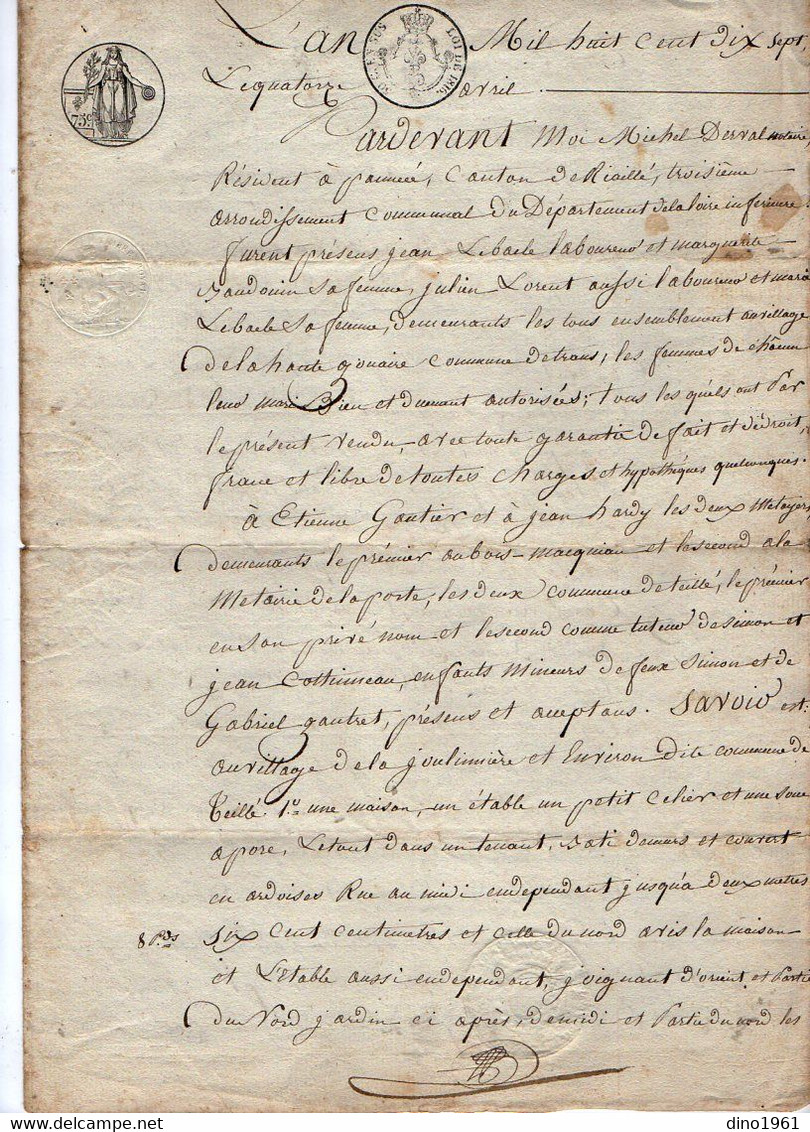 L'an Mil huit Cent dix sept,
Le quatorze avril.
75c
EN SUS LOI DE 1816.
Pardevant Moi Michel Derval notaire,
Résident à pannecé, Canton de Riaillé, troisième
arrondissement Communal Du Département de la loire inferieure
furent présens jean Lebacle laboureur et marguerite
Baudouin sa femme, julien Lorent aussi laboureur et marie
Lebacle Sa femme, demeurants les tous ensemblement au village
de la haute gouaire Commune de trans, les femmes de chacun
leur mari Bien et duement autorisées; tous lesquels ont Par
le présent vendu, avec toute garantie de fait et de droit,
franc et libre de toutes Charges et hypothéques quelconques.
à Etienne Gautier et à jean hardy les deux Metayers
demeurants le prémier au bois-macquiau et le second a la
Metairie de la porte, les deux Commune de teillé, le prémier
en son privé nom et le second comme tuteur de simon et
jean Cottineau, enfants Mineurs de feux Simon et de
Gabriel gautret, présens et acceptans. Savoir est:
au village de la joulinière et Environ dite commune de
Teillé. 1.º une maison, un établе un petit Celier et une soue
a porc, Le tout dans un tenant, Bati de murs et couvert
en ardoises Rue au midi en dependant jusqu'a deux metres
8 Pds Six Cent Centimetres et Celle du nord avis la maison
et L'Etable aussi en dependant, joignant d'orient et Partie
du Nord jardin ci après, de midi et Partie du nord les
dino1961